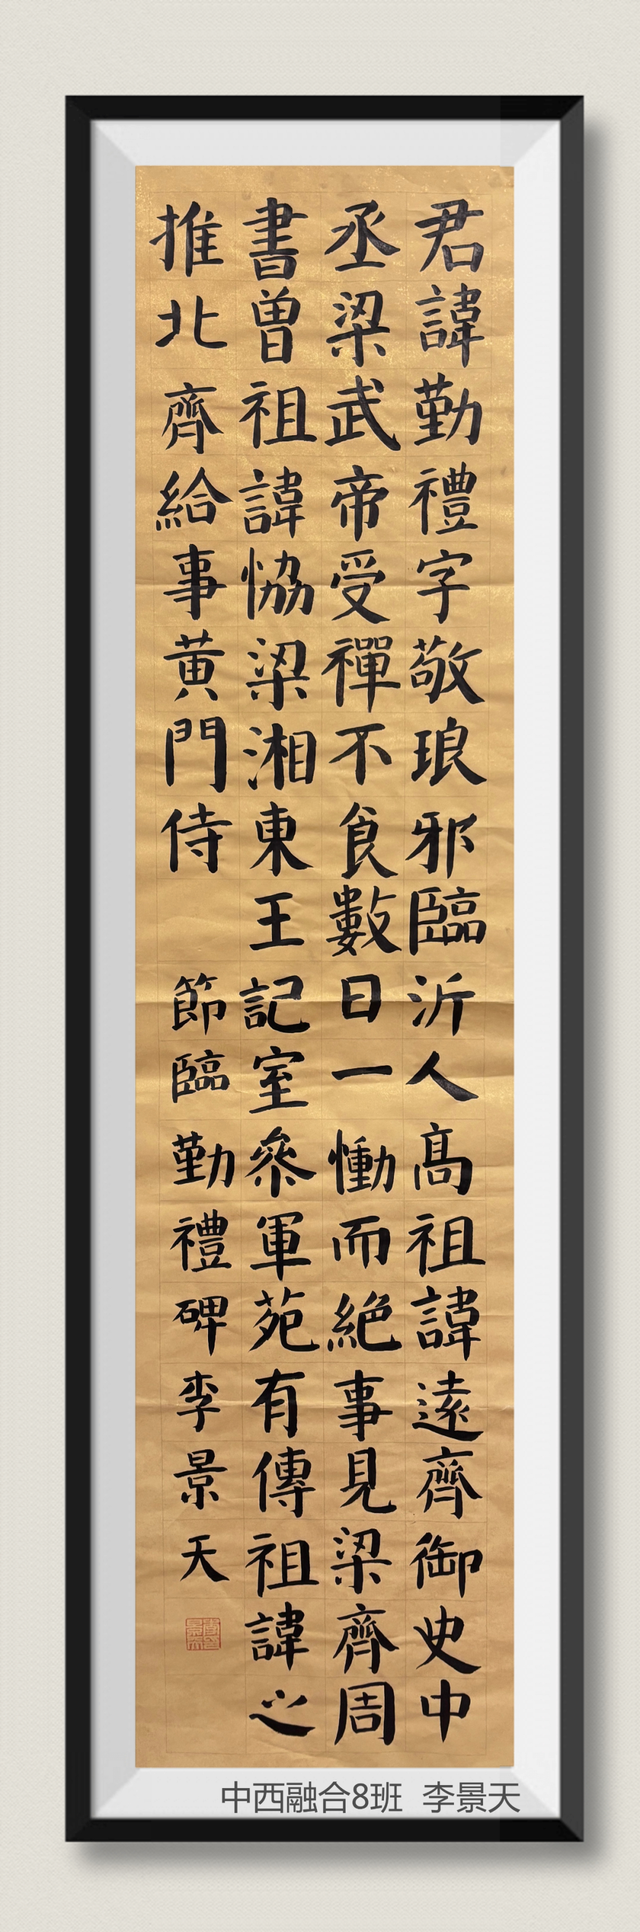 君諱勤禮字敬琅邪臨沂人高祖諱遠齊御史中
丞梁武帝受禪不食數日一慟而絕事見梁齊周
書曾祖諱恊梁湘東王記室參軍苑有傳祖諱之
推北齊給事黃門侍
節臨勤禮碑李景天
中西融合8班 李景天